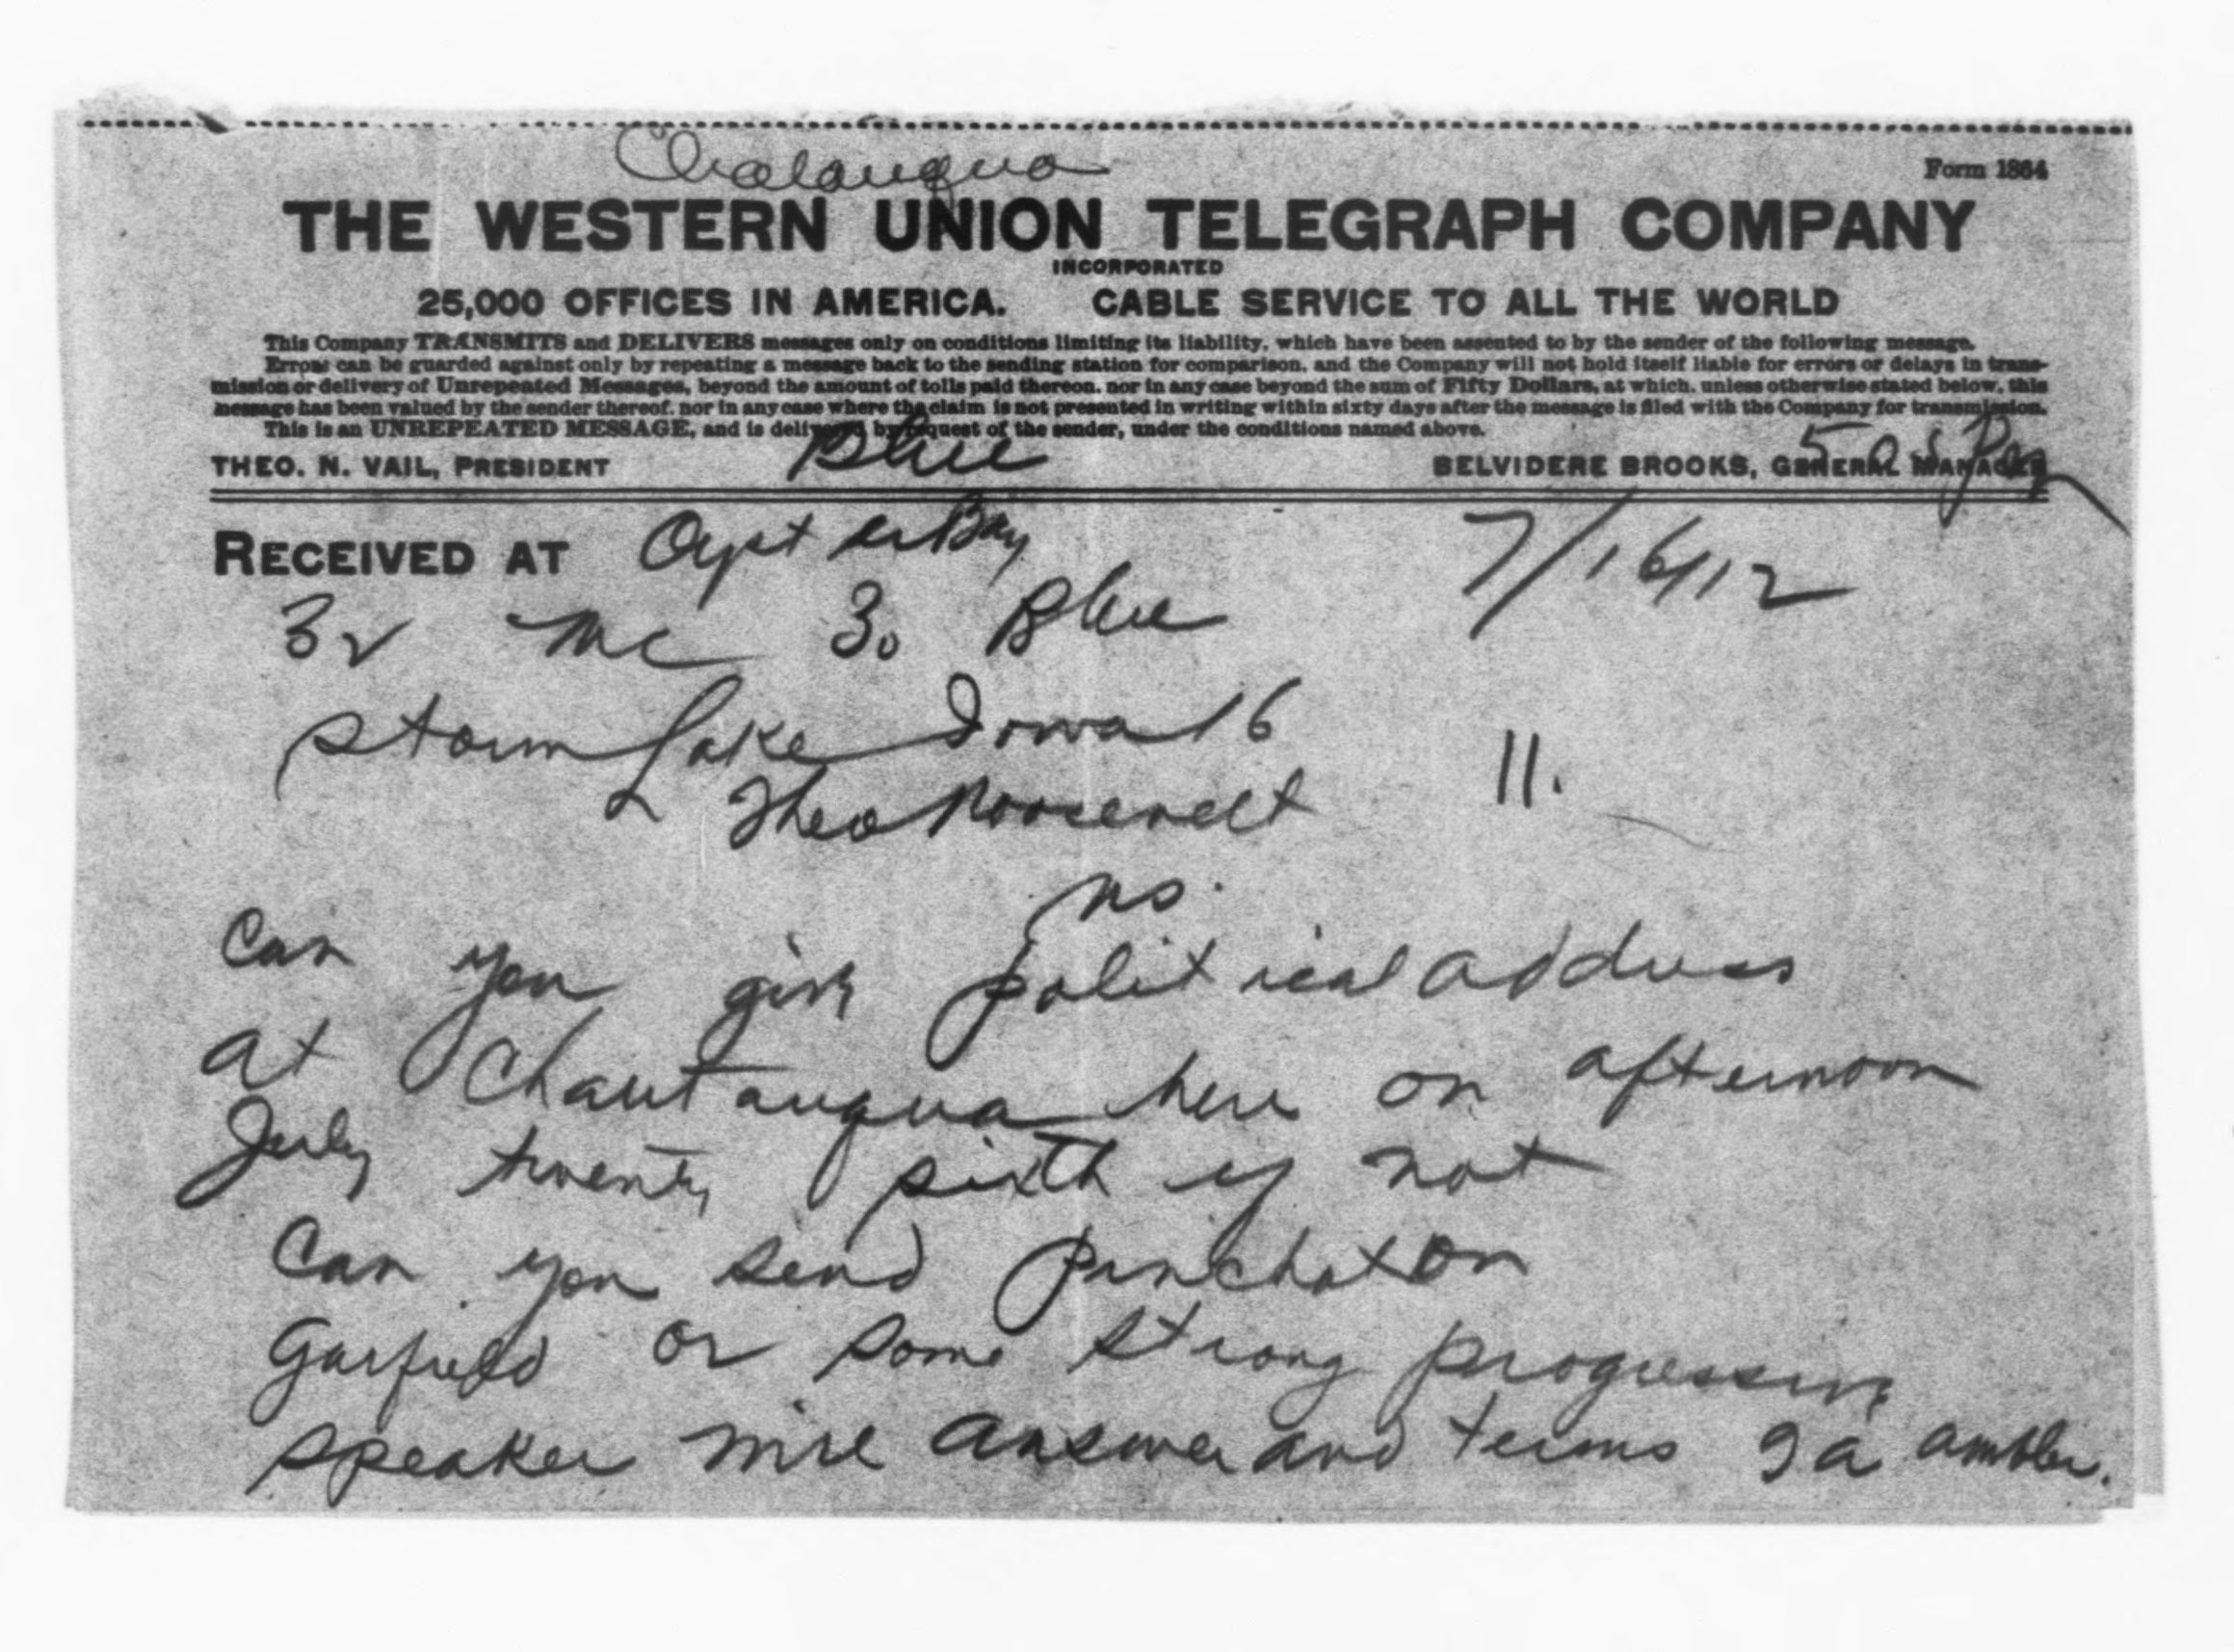 Chatauqua
Form 1864
THE WESTERN UNION TELEGRAPH COMPANY
INCORPORATED
25,000 OFFICES IN AMERICA. CABLE SERVICE TO ALL THE WORLD
This Company TRANSMITS and DELIVERS messages only on conditions limiting its liability, which have been assented to by the sender of the following message.
Errors can be guarded against only by repeating a message back to the sending station for comparison, and the Company will not hold itself liable for errors or delays in trans-
mission or delivery of Unrepeated Messages, beyond the amount of tolls paid thereon, nor in any case beyond the sum of Fifty Dollars, at which, unless otherwise stated below, this
message has been valued by the sender thereof, nor in any case where the claim is not presented in writing within sixty days after the message is filed with the Company for transmission.
This is an UNREPEATED MESSAGE, and is delivered by request of the sender, under the conditions named above.
Blue
THEO. N. VAIL, PRESIDENT BELVIDERE BROOKS, GENERAL MANAGER
RECEIVED AT Oyster Bay 7/16/12
32 mc 30 Blue
Storm Lake Iowa 16 11.
Theo Roosevelt
no.
Can you give political address
at Chautauqua here on afternoon
July twenty sixth if not
Can you send Pinchot or
Garfield or some strong progressive
speaker wire answer and terms ambler.